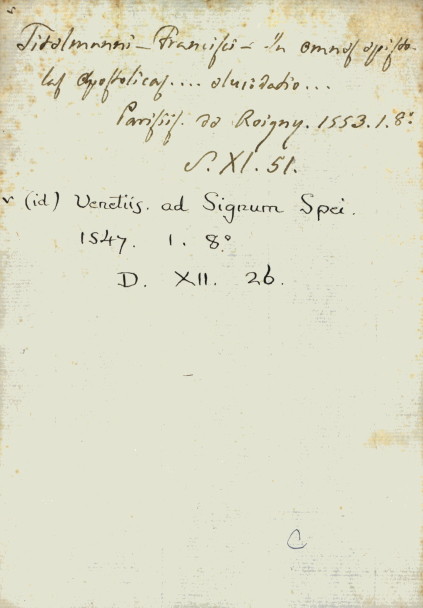 Titelmanni - Francisci - In omnes episto-
las Apostolicas .... elucidatio ...
Parisiis. de Roigny. 1553. 1. 8º
S. XI. 51.
v (id) Venetiis. ad Signum Spei.
1547. 1. 8º
D. XII. 26.
C